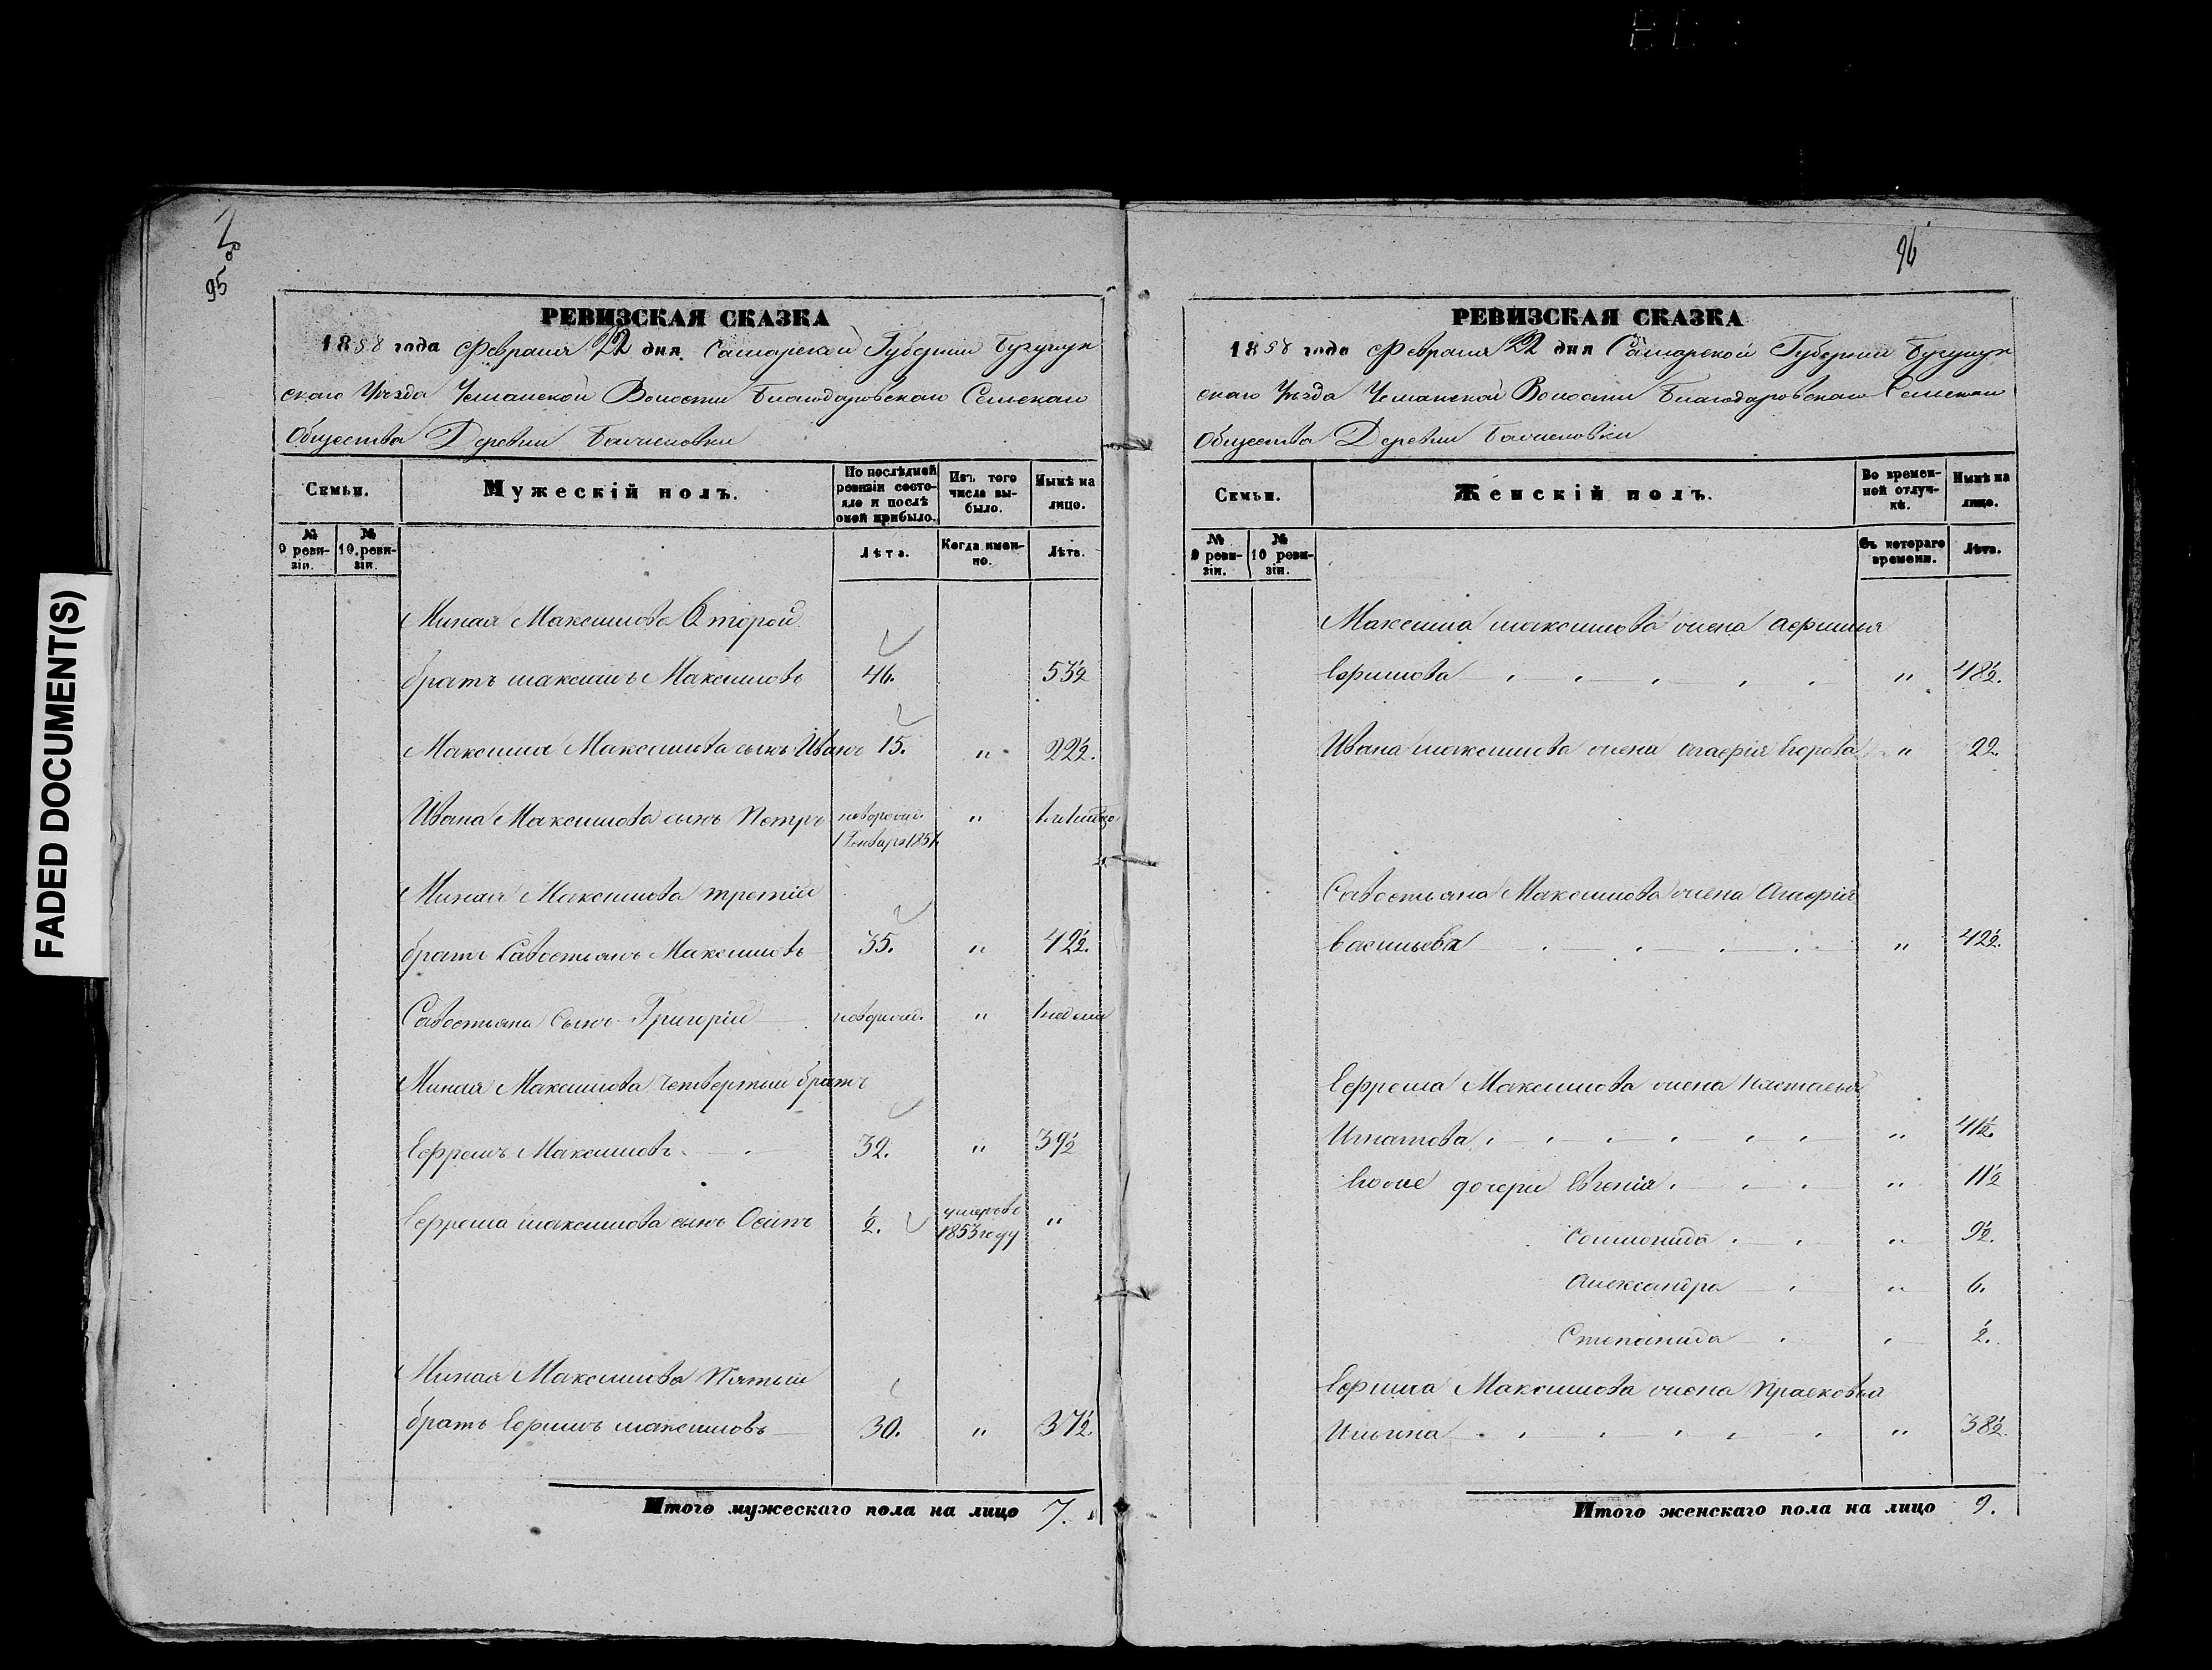 95 об
РЕВИЗСКАЯ СКАЗКА
1858 года Февраля 22 дня Самарской Губернии Бугурук
скаго Уѣзда Волости Благодаровскаго Сельскаго
Общества Деревни
Семьи.
Мужескій полъ.
По послѣдней ревизіи состояло и послѣ оной прибыло.
Изъ того числа выбыло.
Нынѣ на лицо.
№ 9 ревизіи.
№ 10 ревизіи.
Лѣта.
Когда именно.
Лѣта.
Миная Максимова Второй
братъ Максимъ Максимовъ 46. 53½
Максима Максимова сынъ Иванъ 15. " 22½.
Ивана Максимова сынъ Петръ новорожд. "
Миная Максимова третій
братъ Савостьянъ Максимовъ 35. " 42½.
Савостьяна сынъ Григорій новорожд. " 1 неделя
Миная Максимова четвертый братъ
Ефремъ Максимовъ 32. " 39½
Ефрема Максимова сынъ Осипъ ½. умеръ въ 1853 году "
Миная Максимова Пятый
братъ Ефимъ Максимовъ 30. " 37½.
Итого мужескаго пола на лицо 7.
96
РЕВИЗСКАЯ СКАЗКА
1858 года Февраля 22 дня Самарской Губернии Бугурук
скаго Уѣзда Волости Благодаровскаго Сельскаго
Общества Деревни
Семьи.
Женскій полъ.
Во временной отлучкѣ.
Нынѣ на лицо.
№ 9 ревизіи.
№ 10 ревизіи.
Съ котораго времени.
Лѣта.
Максима Максимова жена Афимья
Ефимова " 48½.
Ивана Максимова жена Агафія Егорова " 22.
Савостьяна Максимова жена Агафія
Васильева " 42½.
Ефрема Максимова жена Настасья
Игнатова " 41½.
Ихъ дочери Евгенія " 11½
Соломонида " 9½.
Александра " 6.
Степанида " ½.
Ефима Максимова жена Прасковья
Ильина " 38½.
Итого женскаго пола на лицо 9.
FADED DOCUMENT(S)